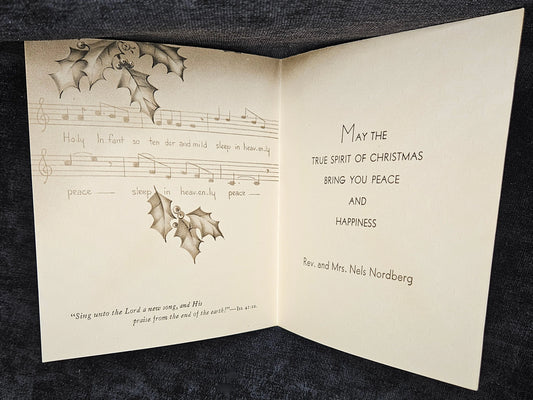 Holy Infant so tender and mild sleep in heav.en.ly
peace — sleep in heav.en.ly peace —
"Sing unto the Lord a new song, and His
praise from the end of the earth!"—Isa. 42:10.
MAY THE
TRUE SPIRIT OF CHRISTMAS
BRING YOU PEACE
AND
HAPPINESS
Rev. and Mrs. Nels Nordberg